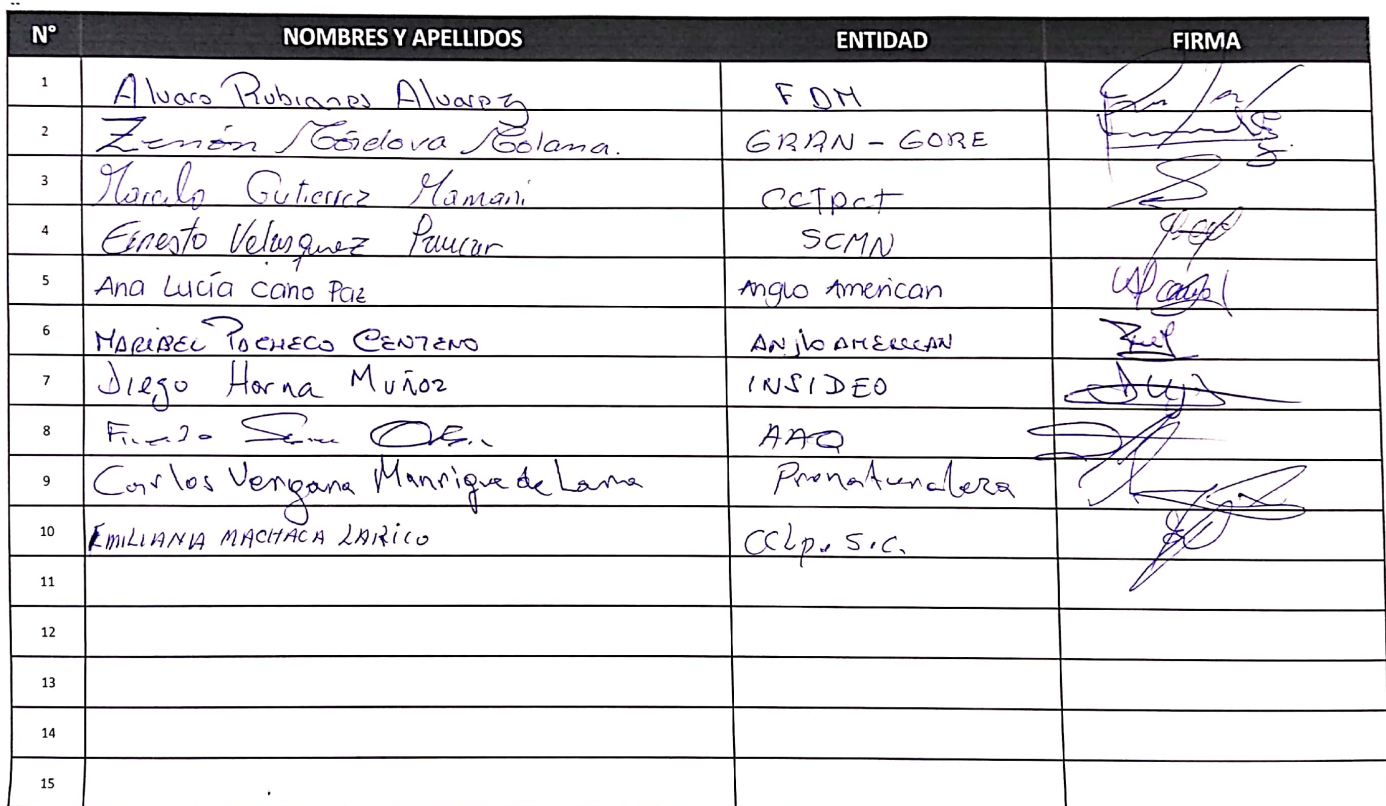 N° NOMBRES Y APELLIDOS ENTIDAD FIRMA
1 Alvaro Rubianes Alvarez FDM
2 Zenón Córdova Colana. GRRN - GORE
3 Marcelo Gutierrez Mamani CCTPCT
4 Ernesto Velasquez Paucar SCMN
5 Ana Lucía Cano Paz Anglo American
6 MARIBEL PACHECO CENTENO ANJLO AMERICAN
7 Diego Horna Muñoz INSIDEO
8 AAQ
9 Carlos Vergara Manrique de Lama Pronaturaleza
10 EMILIANA MACHACA LARICO CCLp. S.C.
11
12
13
14
15